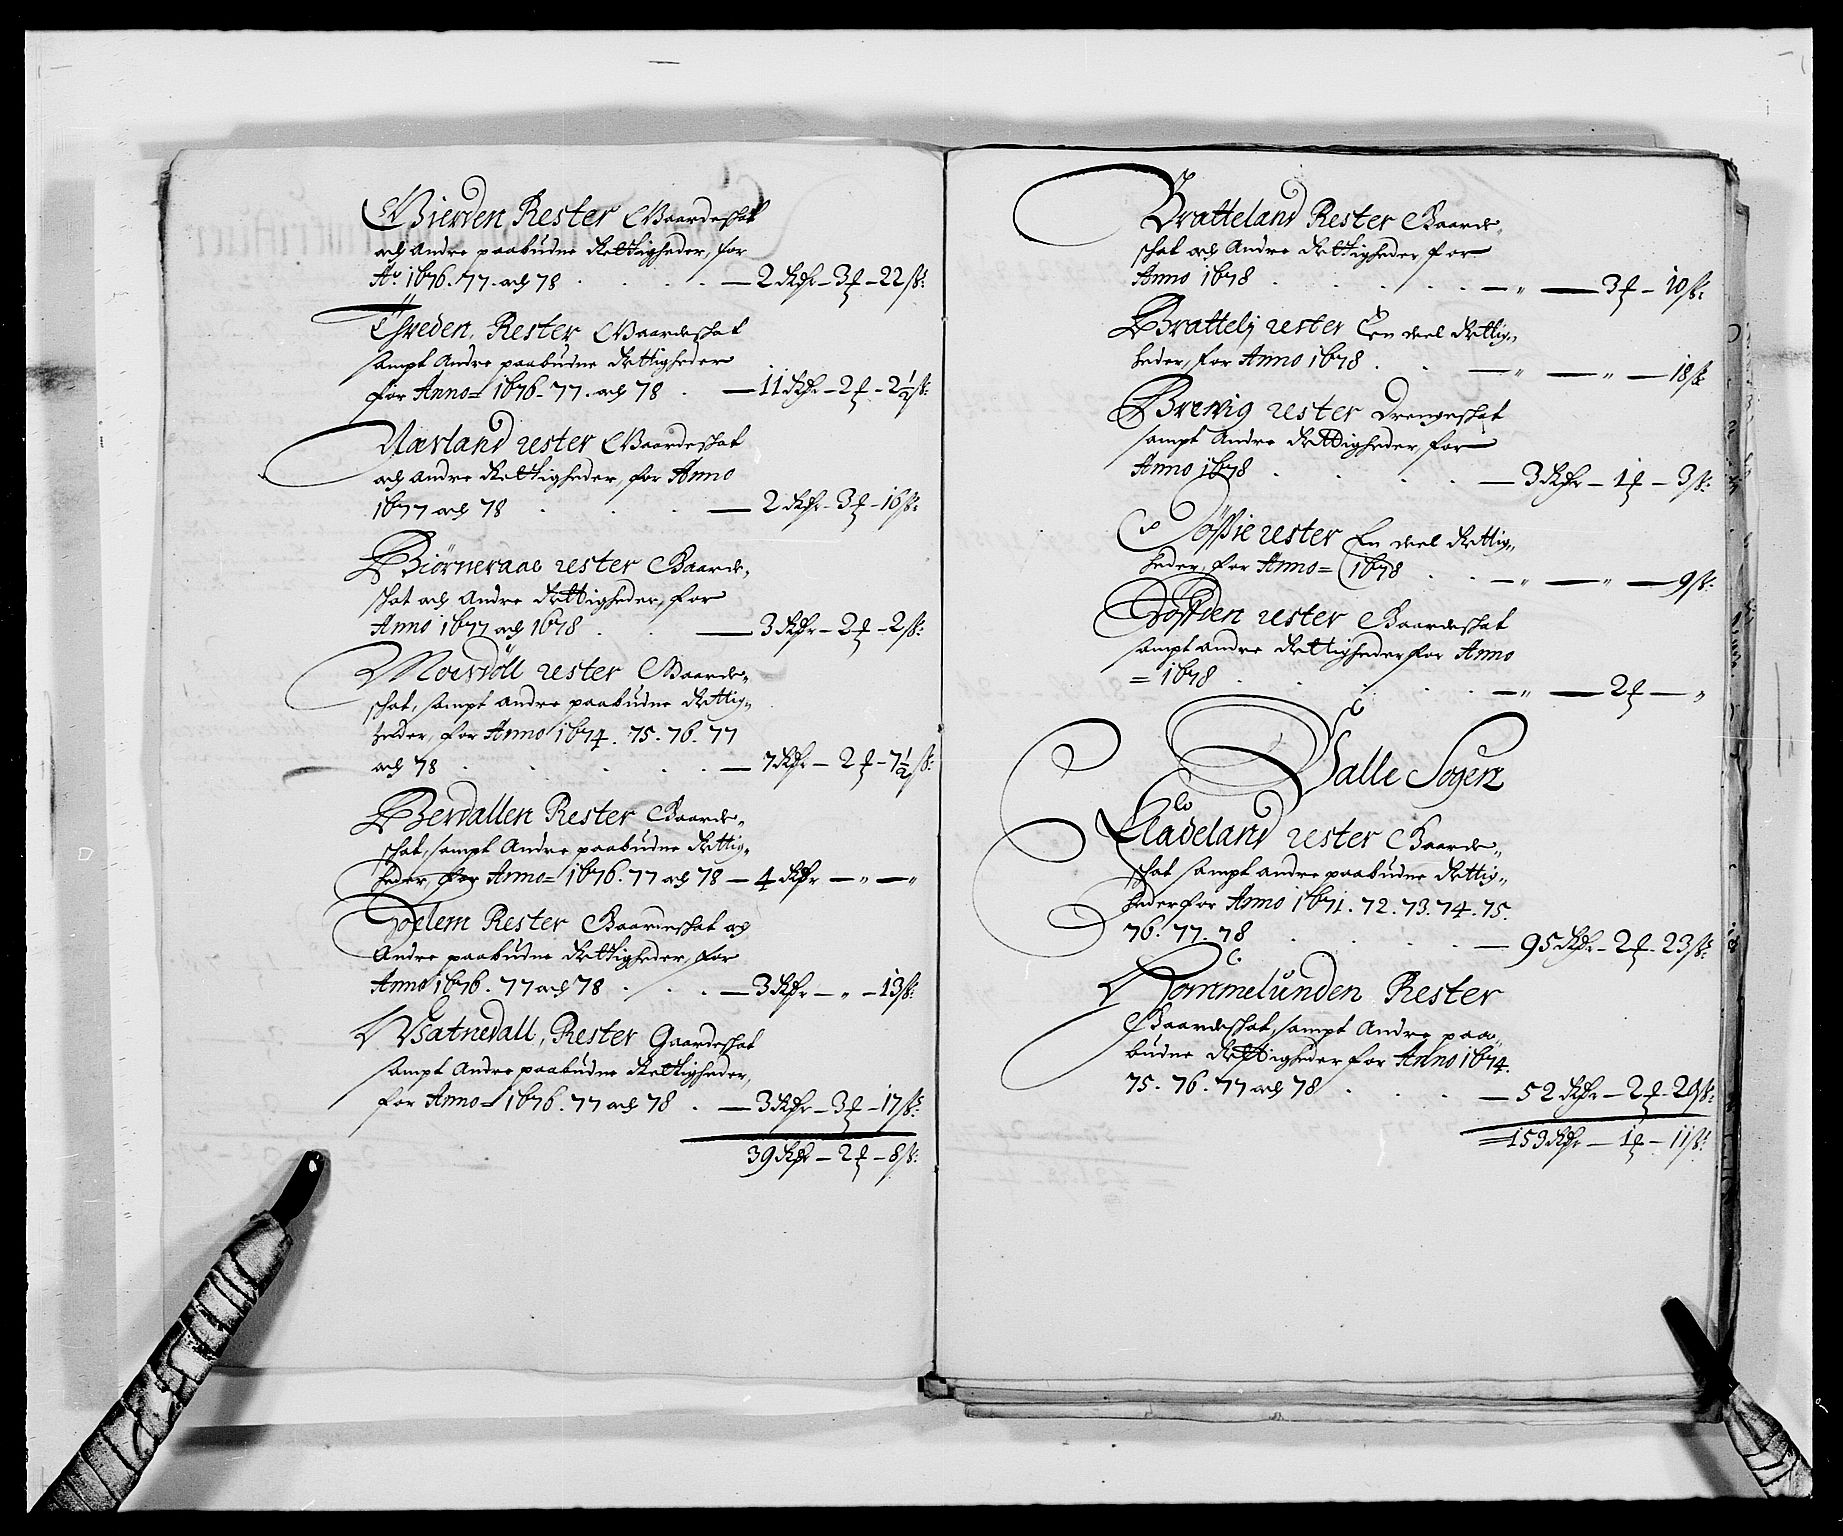 Gierden Rester Gaardeskat
och Andre paabudne Rettigheder, for
Ao 1676. 77. och 78 . . . — 2 Rdr — 3 ƒ — 22 ſk:
Rester Gaardeskat
sampt Andre paabudne Rettigheder
for Anno= 1676. 77. och 78 . — 11 Rdr — 2 ƒ — 2½ ſk:
Naesland rester Gaardeskat
och Andre Rettigheder, for Anno
1677 och 78 . . . — 2 Rdr — 3 ƒ — 16 ſk:
Biörneraae rester Gaarde„
skat och Andre Rettigheder, for
Anno 1677 och 1678 . . — 3 Rdr — 2 ƒ — 2 ſk:
rester Gaarde„
skat, sampt andre paabudne Rettig„
heder, for Anno 1674. 75. 76. 77
och 78 . . . . — 7 Rdr — 2 ƒ — 7½ ſk:
Berdallen Rester Gaarde„
skat, sampt Andre paabudne Rettig„
heder, for Anno= 1676. 77 och 78 — 4 Rdr — „ — „
Rester Gaardeskat och
Andre paabudne Rettigheder, for
Anno 1676. 77 och 78 . . . — 3 Rdr — „ — 13 ſk:
Vatnedall, Rester Gaardeskat
sampt Andre paabudne Rettigheder,
for Anno= 1676. 77 och 78 . — 3 Rdr — 3 ƒ — 17 ſk:
39 Rdr — 2 ƒ — 8 ſk:
Bratteland Rester Gaarde„
skat och Andre Rettigheder for
Anno 1678 . . . . — „ — 3 ƒ — 10 ſk:
Brattelj rester Een deel Rettig„
heder, for Anno 1678 . . — „ — „ — 18 ſk:
Brevig rester Drengeskat
sampt Andre Rettigheder, for
Anno 1678 . . . . — 3 Rdr — 1 ƒ — 3 ſk:
rester En deel Rettig„
heder, for Anno= 1678 . . — „ — „ — 9 ſk:
rester Gaardeskat
sampt andre Rettigheder for Anno
= 1678 . . . . — „ — 2 ƒ — „
Valle Sogen
rester Gaarde„
skat sampt andre paabudne Rettig„
heder for Anno 1671. 72. 73. 74. 75.
76. 77. 78 . . . . — 95 Rdr — 2 ƒ — 23 ſk:
Rommelunden Rester
Gaardeskat, sampt Andre paa„
budne Rettigheder for Anno 1674.
75. 76. 77 och 78 . . . — 52 Rdr — 2 ƒ — 20 ſk:
= 159 Rdr — 1 ƒ — 11 ſk: